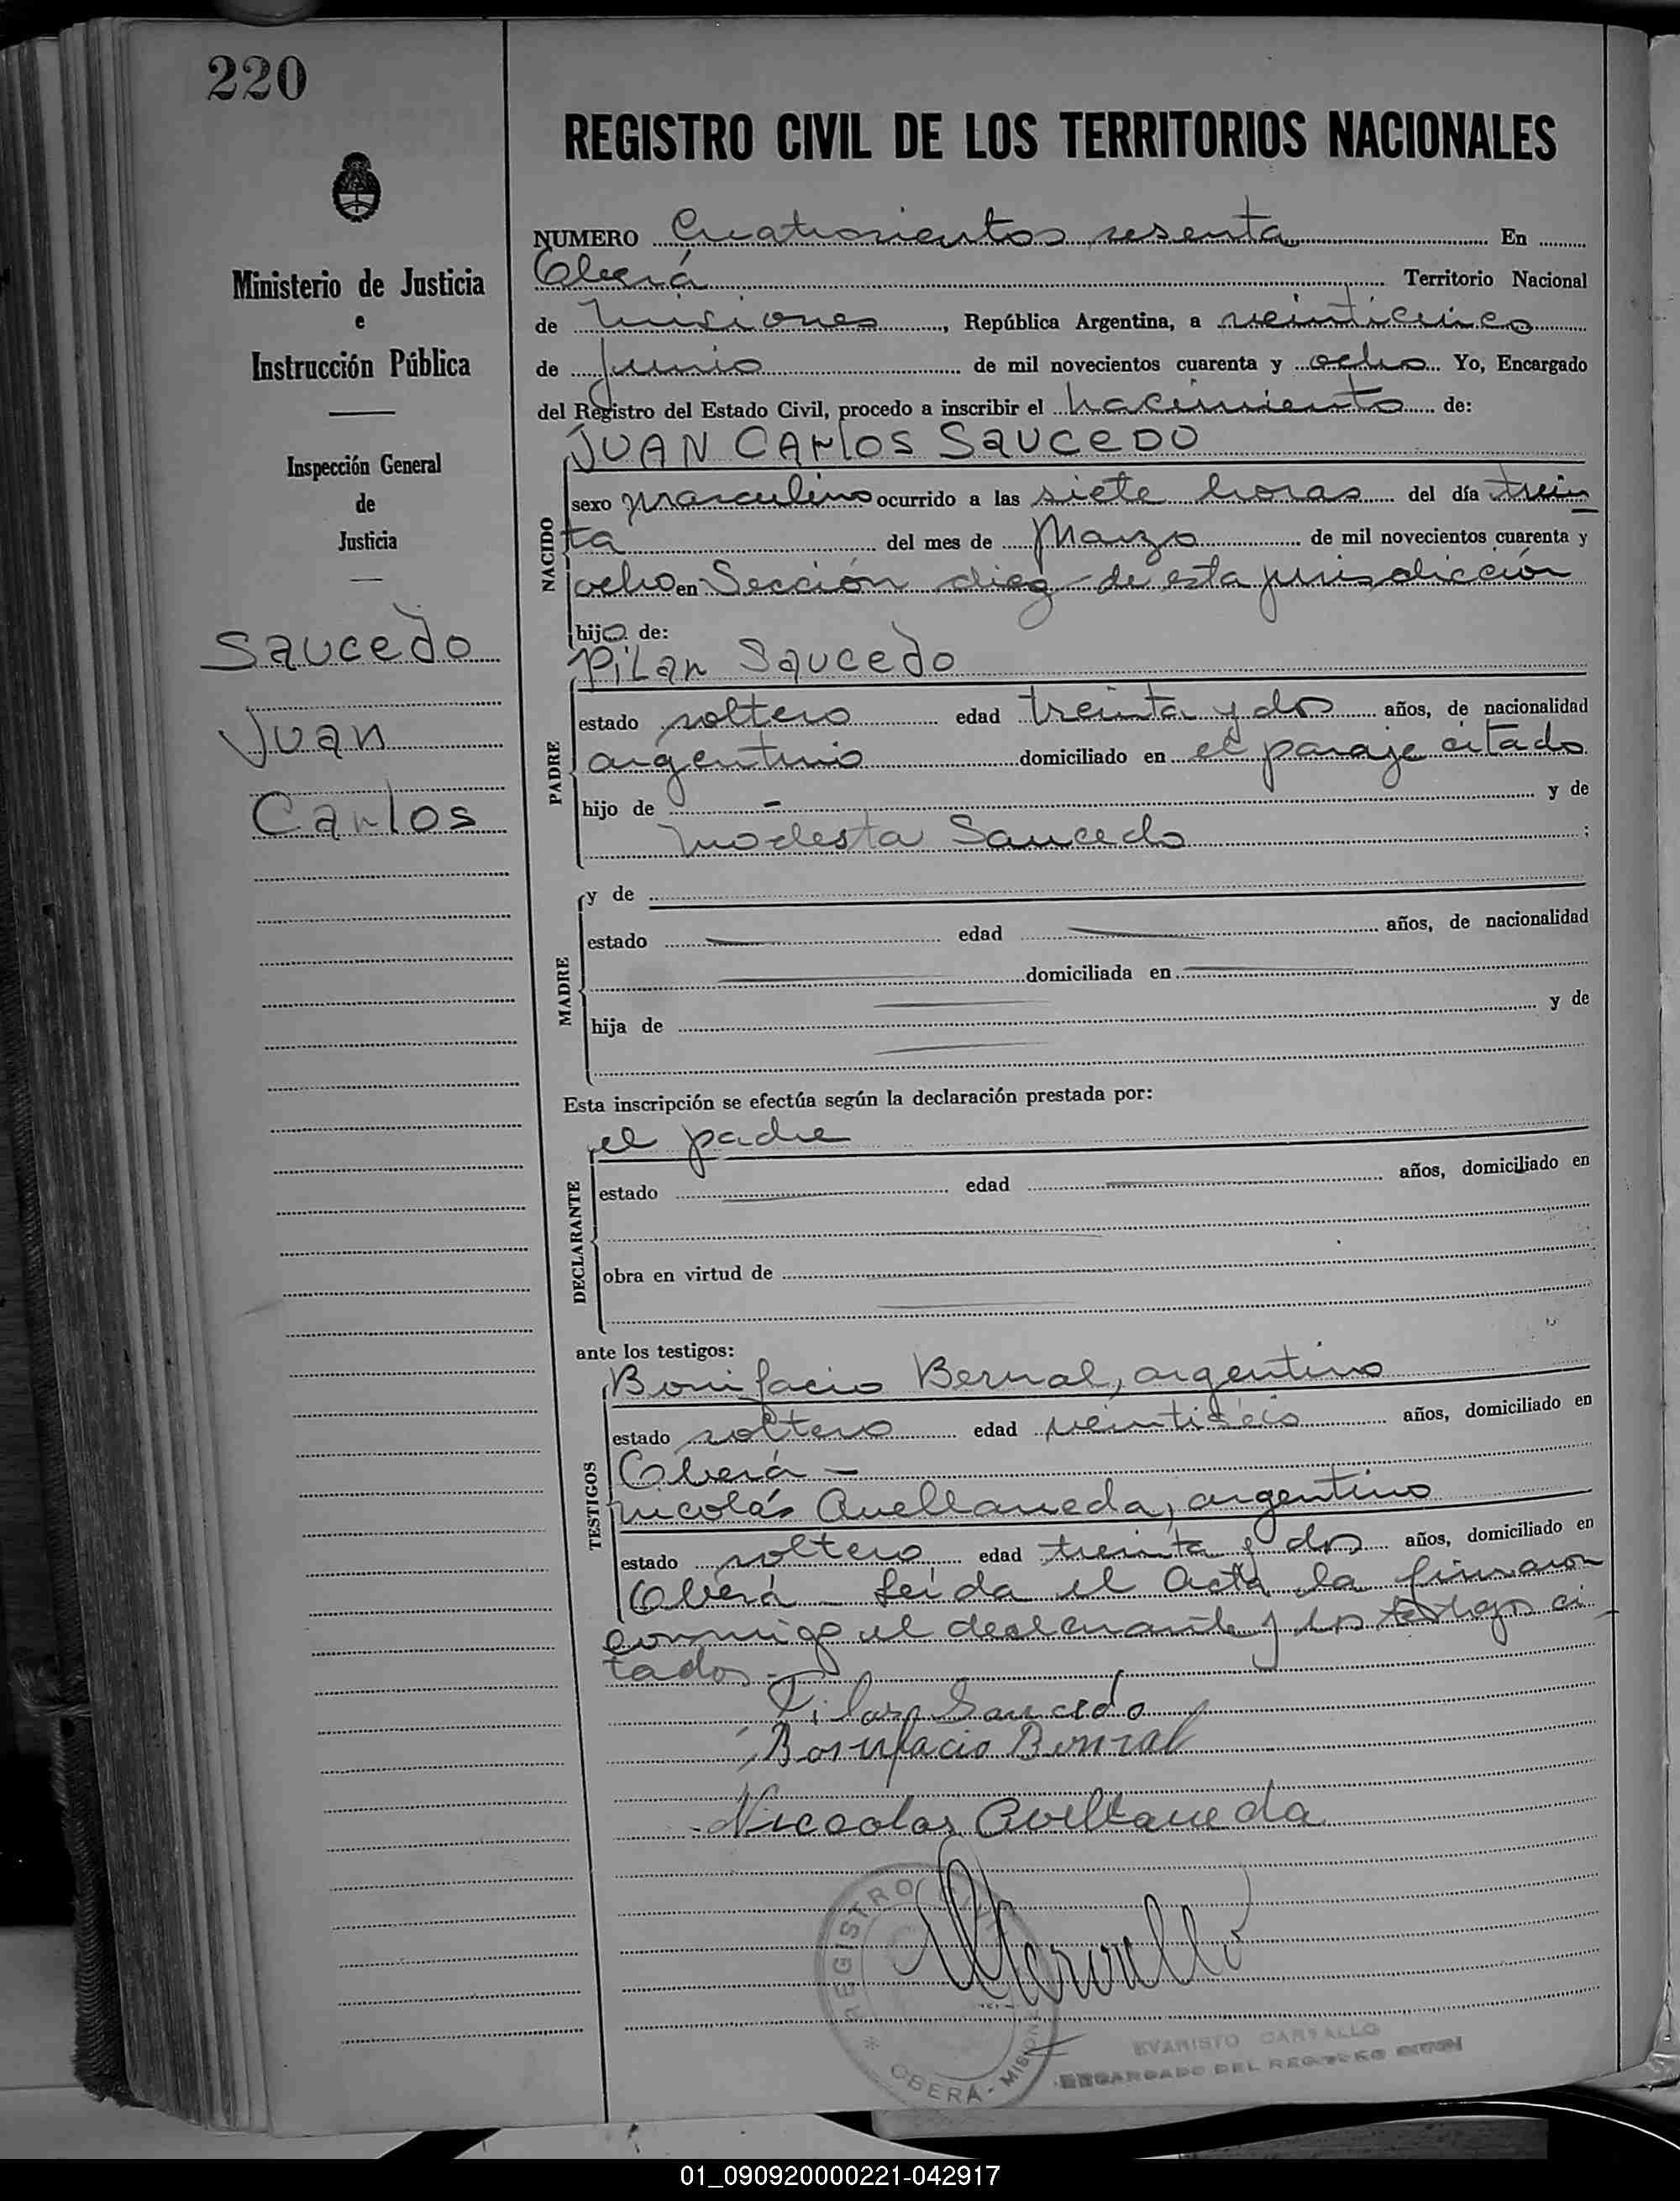 220
Ministerio de Justicia
e
Instrucción Pública
Inspección General
de
Justicia
Saucedo
Juan
Carlos
REGISTRO CIVIL DE LOS TERRITORIOS NACIONALES
NUMERO Cuatrocientos sesenta En
Oberá Territorio Nacional
de Misiones, República Argentina, a veinticinco
de junio de mil novecientos cuarenta y ocho Yo, Encargado
del Registro del Estado Civil, procedo a inscribir el nacimiento de:
JUAN CARlOS SAUCEDO
NACIDO
sexo masculino ocurrido a las siete horas del día trein
ta del mes de Marzo de mil novecientos cuarenta y
ocho en Sección diez - de esta jurisdicción
hijo de:
Pilar Saucedo
PADRE
estado soltero edad treinta y dos años, de nacionalidad
argentino domiciliado en el paraje citado
hijo de - y de
Modesta Saucedo ;
MADRE
y de
estado edad años, de nacionalidad
domiciliada en
hija de y de
Esta inscripción se efectúa según la declaración prestada por:
el padre
DECLARANTE
estado edad años, domiciliado en
obra en virtud de
ante los testigos:
TESTIGOS
Bonifacio Bernal, argentino
estado soltero edad veintiséis años, domiciliado en
Oberá -
Nicolás Avellaneda, argentino
estado soltero edad treinta y dos años, domiciliado en
Oberá - Leída el Acta la firmaron
conmigo el declarante y los testigos ci
tados.-
Pilar Saucedo
Bonifacio Bernal
Nicolas Avellaneda
REGISTRO
OBERÁ - MISIONES
EVARISTO CARVALLO
ENCARGADO DEL REGISTRO CIVIL
01_090920000221-042917